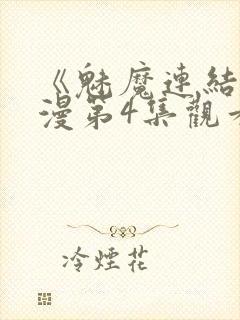 《魅魔連結
漫第4集觀
冷煙花